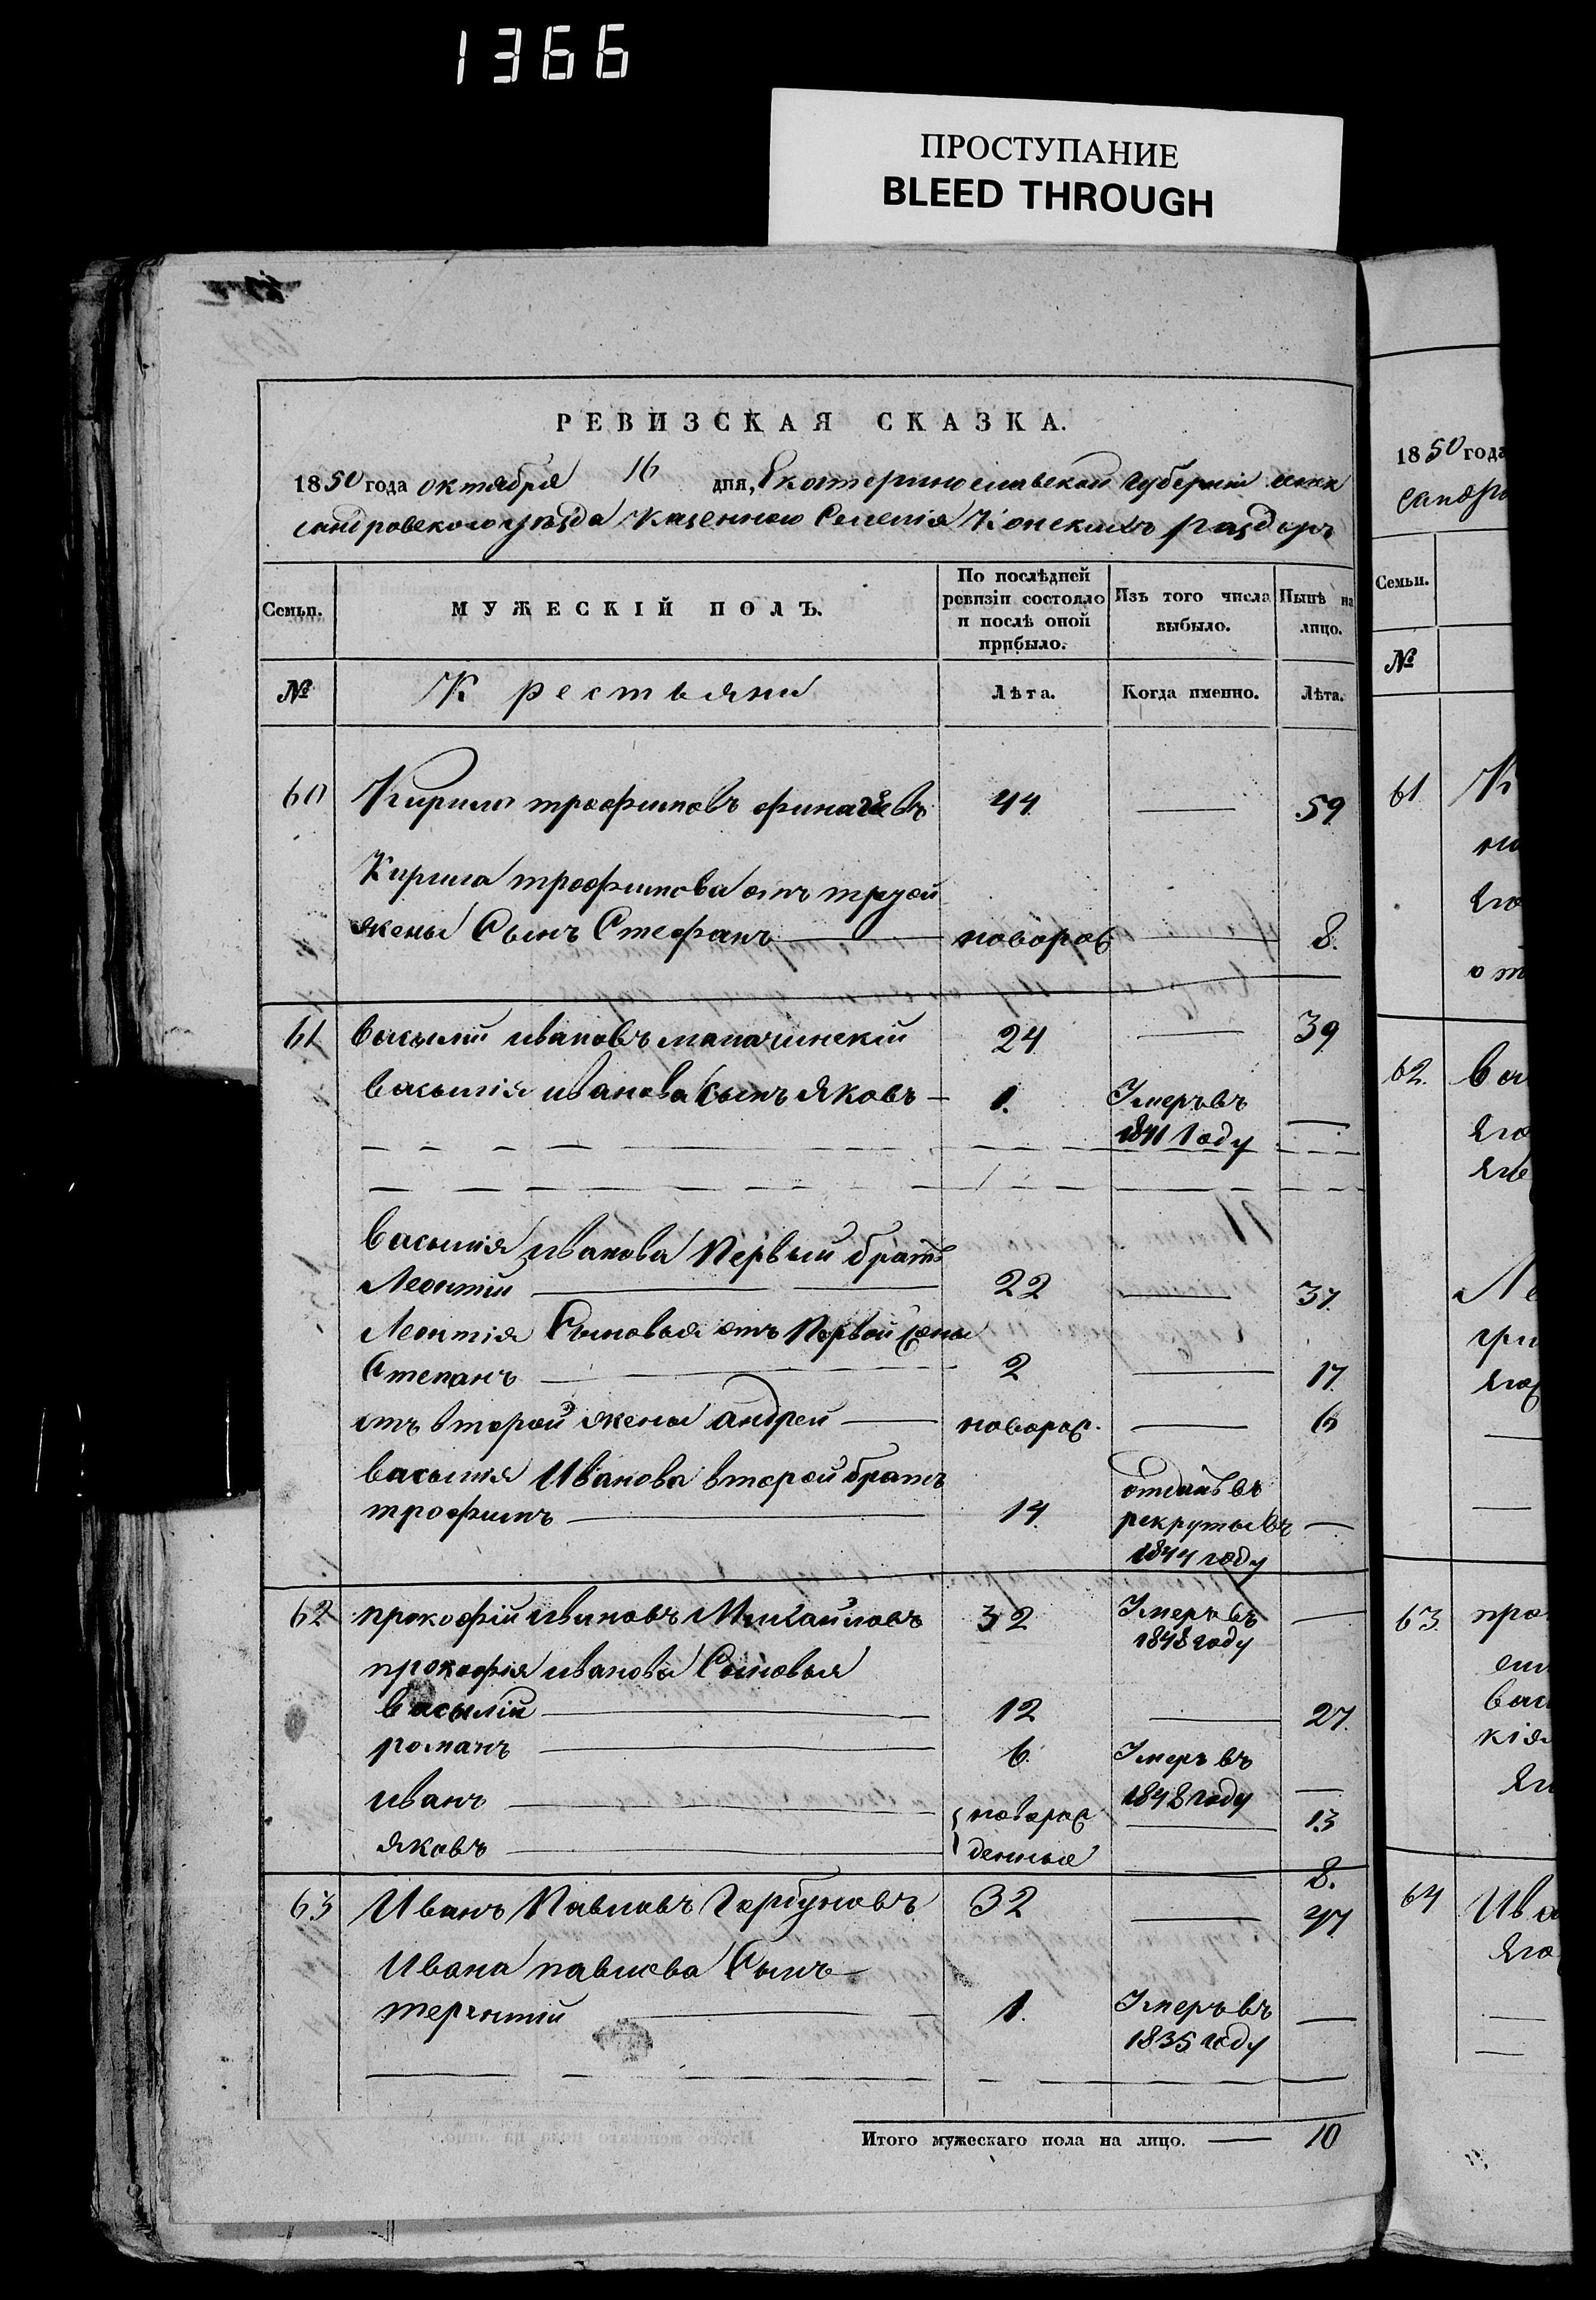 1366
ПРОСТУПАНИЕ
BLEED THROUGH
РЕВИЗСКАЯ СКАЗКА.
1850 года октября 16 дня, Екатеринославской губерніи Алек
сандровского уѣзда казенного Селенія Конскихъ раздоръ
Семьи. МУЖЕСКІЙ ПОЛЪ. По послѣдней ревизіи состояло и послѣ оной прибыло. Изъ того числа выбыло. Нынѣ на лицо.
№ Крестьяни Лѣта. Когда именно. Лѣта.
60 Кирило трофимовъ 44 — 59
Кирила трофимова отъ
жены Сынъ Стефанъ — новорож — 8.
61 василій ивановъ 24 — 39
василія иванова сынъ яковъ — 1. Умеръ въ
1841 году —
василія иванова Первый братъ
Леонтій — 22 — 37.
Леонтія Сыновья отъ Первой жены
Степанъ — 2 — 17
отъ второй жены андрей — новорож. — 6
василія Иванова второй братъ
трофимъ — 14 отданъ въ
рекруты въ —
1844 году
62 прокофій ивановъ Михайловъ 32 Умеръ въ —
1848 году
прокофія иванова Сыновья
василій — 12 — 27.
романъ — 6. Умеръ въ
1848 году —
иванъ — новорож — 13
яковъ — денные — 8.
63 Иванъ Павловъ Горбуновъ 32 — 47
Ивана павлова Сынъ
терентій — 1. Умеръ въ —
1835 году
Итого мужескаго пола на лицо. — 10
1850 года
сандро
Семьи.
№
61 К
62. ва
Ле
63 про
вас
64 Ива